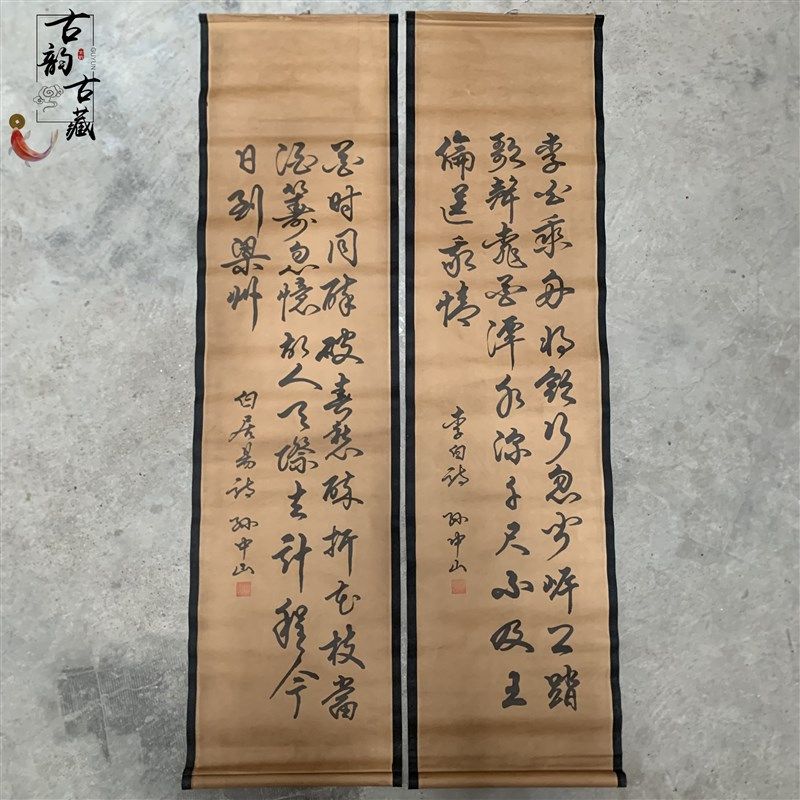 古韵
古藏
GUYUN
李白乘舟将欲行忽闻岸上踏
歌聲桃花潭水深千尺不及王
倫送我情
李白诗 孙中山
花时同醉破春愁醉折花枝當
酒籌忽憶故人天際去计程今
日到梁州
白居易诗 孙中山